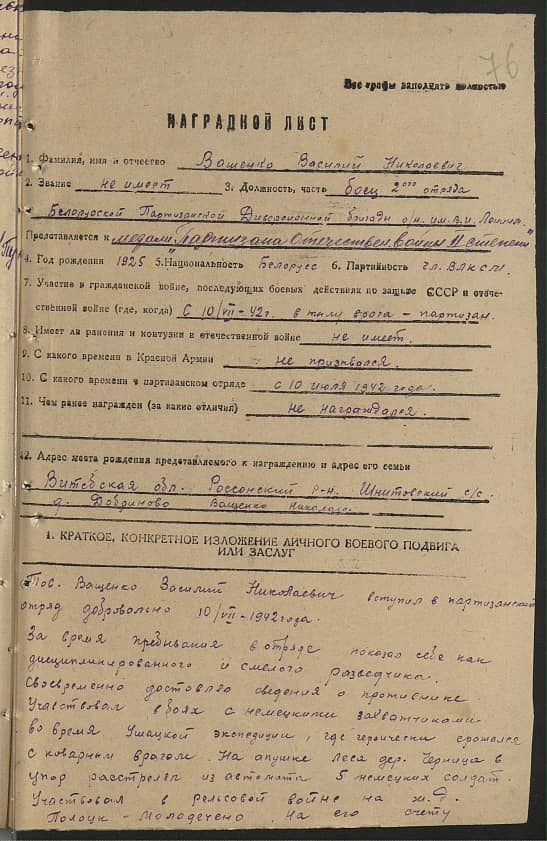 76
Все графы заполнять полностью
НАГРАДНОЙ ЛИСТ
1. Фамилия, имя и отчество Ващенко Василий Николаевич
2. Звание не имеет 3. Должность, часть боец 2ого отряда
Белорусской Партизанской Диверсионной бригады о/н. им. В.И. Ленина.
Представляется к медали "Партизана Отечествен. войны II степени"
4. Год рождения 1925 5. Национальность Белорусс 6. Партийность чл. ВЛКСМ.
7. Участие в гражданской войне, последующих боевых действиях по защите СССР и отече-
ственной войне (где, когда) С 10/VII-42г. в тылу врага - партизан.
8. Имеет ли ранения и контузии в отечественной войне не имеет.
9. С какого времени в Красной Армии не призывался.
10. С какого времени в партизанском отряде с 10 июля 1942 года.
11. Чем ранее награжден (за какие отличия) не награждался.
12. Адрес места рождения представляемого к награждению и адрес его семьи
Витебская обл. Россонский р-н. Шнитовский с/с.
д. Добриново Ващенко
1. КРАТКОЕ, КОНКРЕТНОЕ ИЗЛОЖЕНИЕ ЛИЧНОГО БОЕВОГО ПОДВИГА
ИЛИ ЗАСЛУГ
Тов. Ващенко Василий Николаевич вступил в партизанский
отряд добровольно 10/VII-1942 года.
За время пребывания в отряде показал себя как
дисциплинированного и смелого разведчика.
Своевременно доставлял сведения о противнике
Участвовал в боях с немецкими захватчиками
во время Ушацкой экспедиции, где героически сражался
с коварным врагом. На опушке леса дер. Черница в
упор расстрелял из автомата 5 немецких солдат.
Участвовал в рельсовой войне на ж.д.
Полоцк - Молодечено на его счету